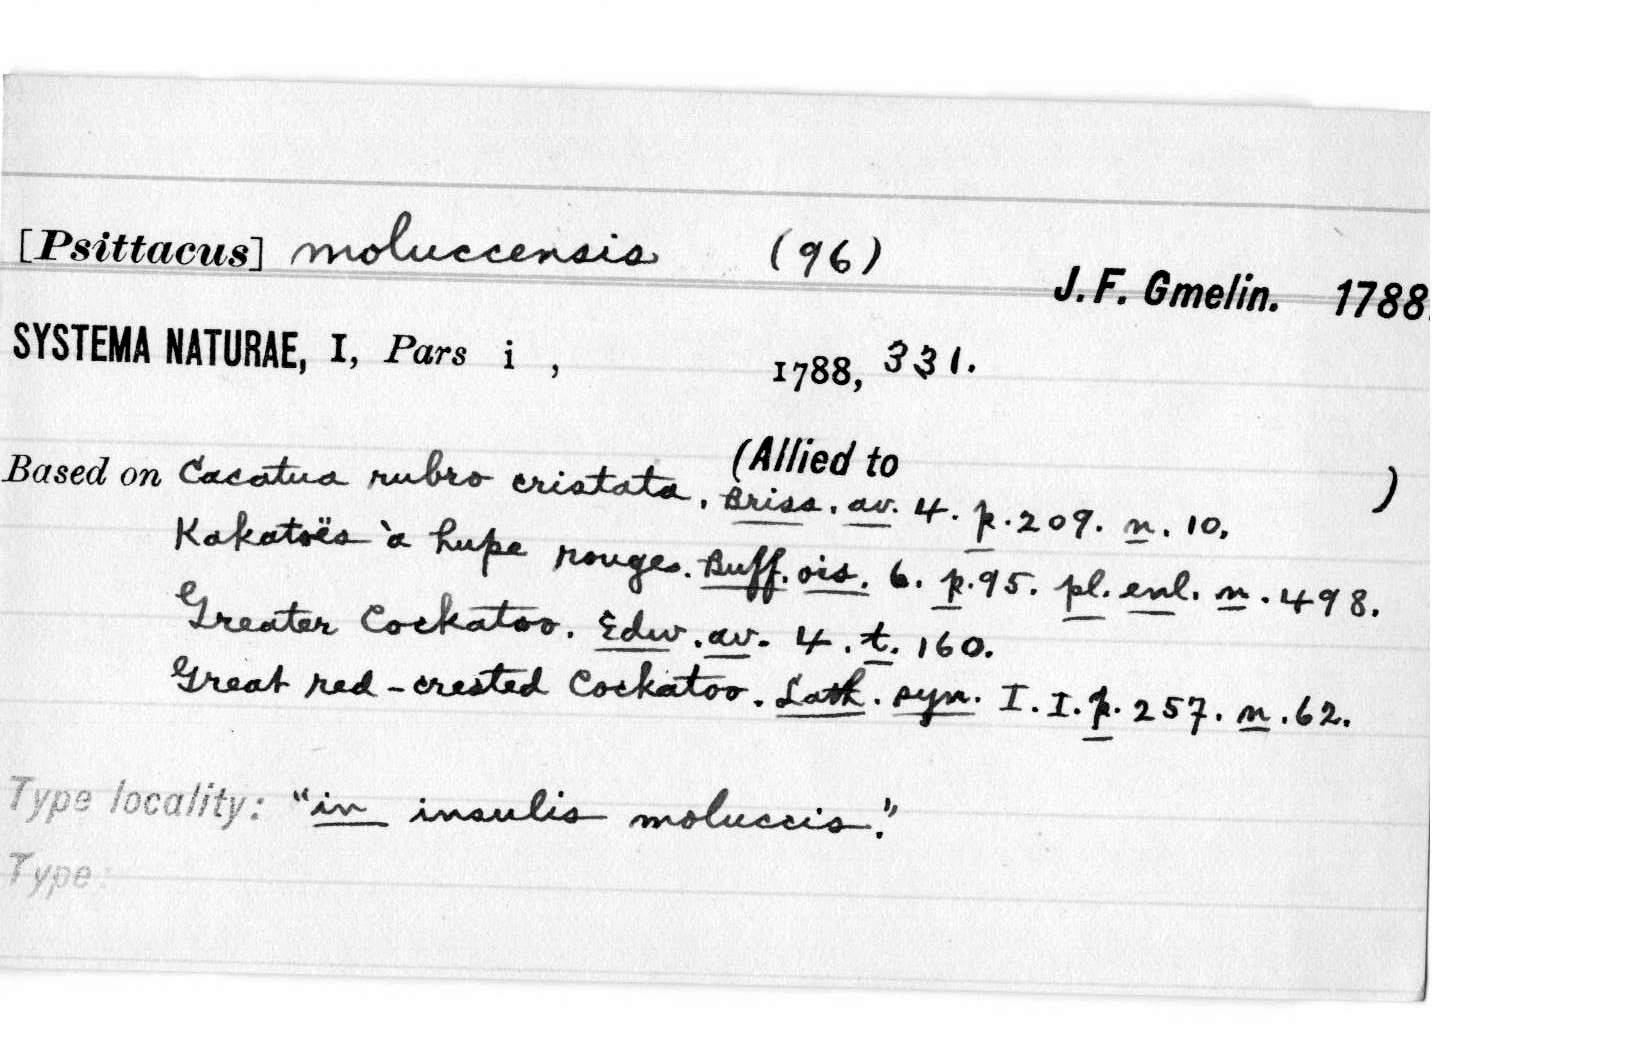 [Psittacus] moluccensis (96)
J. F. Gmelin. 1788.
SYSTEMA NATURAE, I, Pars i , 1788, 331.
(Allied to )
Based on Cacatua rubro cristata. Briss. av. 4. p. 209. n. 10,
Kakatoës à hupe rouges. Buff. ois. 6. p. 95. pl. enl. n. 498.
Greater Cockatoo. Edw. av. 4. t. 160.
Great red-crested Cockatoo. Lath. syn. I. I. p. 257. n. 62.
Type locality: "in insulis moluccis."
Type: